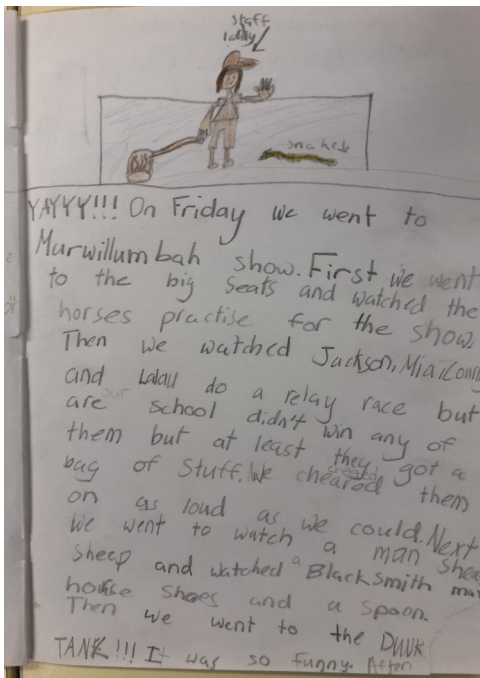 staff
lady
snake
YAYYY!!! On Friday we went to
Murwillumbah show. First, we went
to the big seats and watched the
horses practise for the show.
Then we watched Jackson, Mia,
and do a relay race but
are our school didn't win any of
them but at least they got a
bag of stuff. We cheared them
on as loud as we could. Next
we went to watch a man shea
sheep and watched a Blacksmith ma
horse shoes and a spoon.
Then we went to the DUNK
TANK!!! It was so funny. After